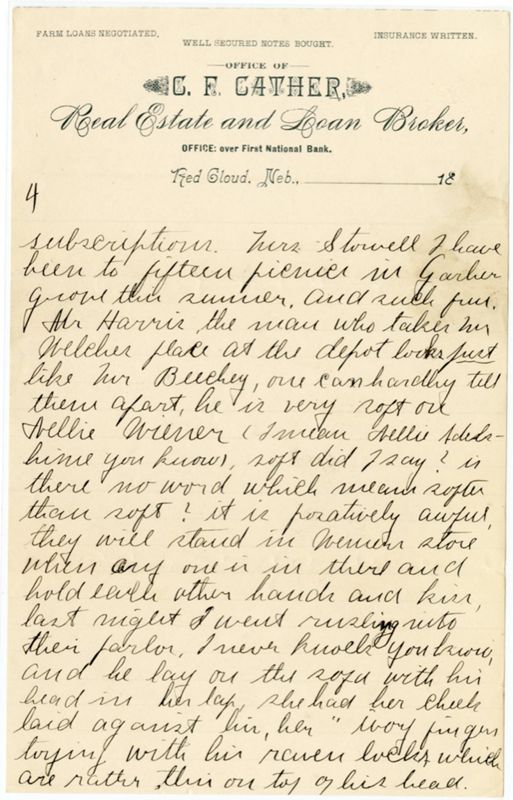 FARM LOANS NEGOTIATED.
WELL SECURED NOTES BOUGHT.
INSURANCE WRITTEN.
OFFICE OF
C. F. CATHER,
Real Estate and Loan Broker,
OFFICE: over First National Bank.
Red Cloud, Neb., 18
4
subscriptions. Mrs Stowell I have
been to fifteen picnics in Garber
grove this summer, and such fun.
Mr Harris the man who takes Mr
Welches place at the depot looks just
like Mr Beechey, one can hardly tell
them apart, he is very soft on
Nellie Wiener (I mean Nellie
you know), soft did I say? is
there no word which means softer
than soft? it is posatively awful,
they will stand in Wieners store
when any one is in there and
hold each other hands and kiss,
last night I went rushing into
their parlor, I never knock you know,
and he lay on the sofa with his
head in her lap, she had her cheek
laid against his, her "ivory fingers
toying with his raven locks" which
are rather thin on top of his head.